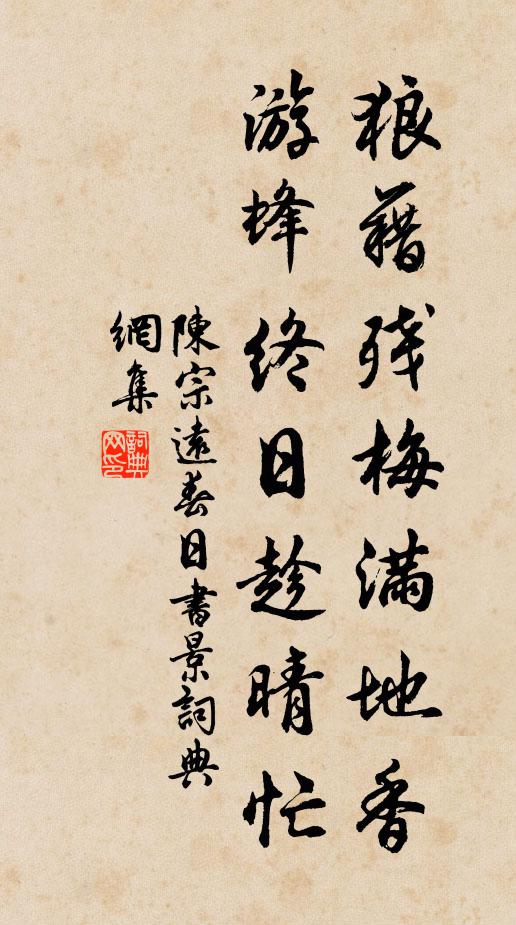 狼藉残梅满地香
游蜂终日趁晴忙
陳宗遠春日書景詞典
網集
詞典网印